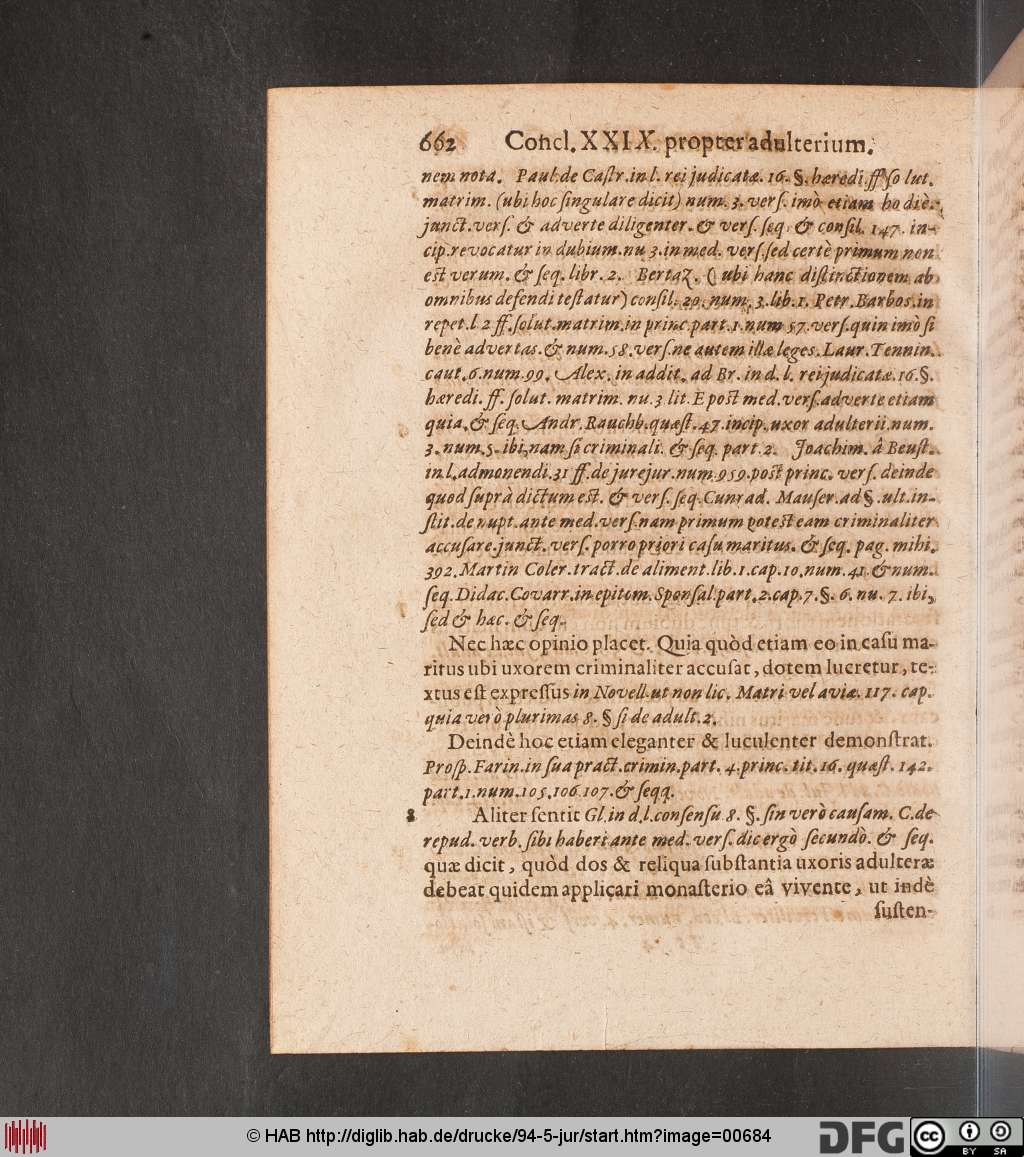 662 Concl. XXIX. propter adulterium.
nem nota. Paul. de Castr. in l. rei judicatæ. 16. §. hæredi. ff so lut.
matrim. (ubi hoc singulare dicit) num. 3. vers. imò etiam ho diè.
junct. vers. & adverte diligenter. & vers. seq. & consil. 147. in-
cip. revocatur in dubium. nu 3. in med. vers. sed certè primum non
est verum. & seq. libr. 2. Bertaz. (ubi hanc distinctionem ab
omnibus defendi testatur) consil. 29. num. 3. lib. 1. Petr. Barbos. in
repet. l 2 ff. solut. matrim. in princ. part. 1. num 57. vers. quin imò si
benè advertas. & num. 58. vers. ne autem illæ leges. Laur. Tennin.
caut. 6. num. 99. Alex. in addit. ad Br. in d. l. rei judicatæ. 16. §.
hæredi. ff. solut. matrim. nu. 3 lit. E post med. vers. adverte etiam
quia. & seq. Andr. Rauchb. quæst. 47. incip. uxor adulterii. num.
3. num. 5. ibi, nam si criminali. & seq. part. 2. Joachim. â Beust.
in l. admonendi. 31 ff. de jurejur. num. 959. post princ. vers. deinde
quod suprà dictum est. & vers. seq. Cunrad. Mauser. ad §. ult. in-
stit. de nupt. ante med. vers. nam primum potest eam criminaliter
accusare. junct. vers. porro priori casu maritus. & seq. pag. mihi.
392. Martin Coler. tract. de aliment. lib. 1. cap. 10. num. 41. & num.
seq. Didac. Covarr. in epitom. Sponsal. part. 2. cap. 7. §. 6. nu. 7. ibi,
sed & hac. & seq.
Nec hæc opinio placet. Quia quòd etiam eo in casu ma-
ritus ubi uxorem criminaliter accusat, dotem lucretur, te-
xtus est expressus in Novell. ut non lic. Matri vel aviæ. 117. cap.
quia verò plurimas 8. § si de adult. 2.
Deindè hoc etiam eleganter & luculenter demonstrat.
Prosp. Farin. in sua pract. crimin. part. 4. princ. tit. 16. quæst. 142.
part. 1. num. 105. 106. 107. & seqq.
8 Aliter sentit Gl. in d. l. consensu 8. §. sin verò causam. C. de
repud. verb. sibi haberi ante med. vers. dic ergò secundò. & seq.
quæ dicit, quòd dos & reliqua substantia uxoris adulteræ
debeat quidem applicari monasterio eâ vivente, ut indè
susten-
© HAB http://diglib.hab.de/drucke/94-5-jur/start.htm?image=00684
DFG
cc
BY SA